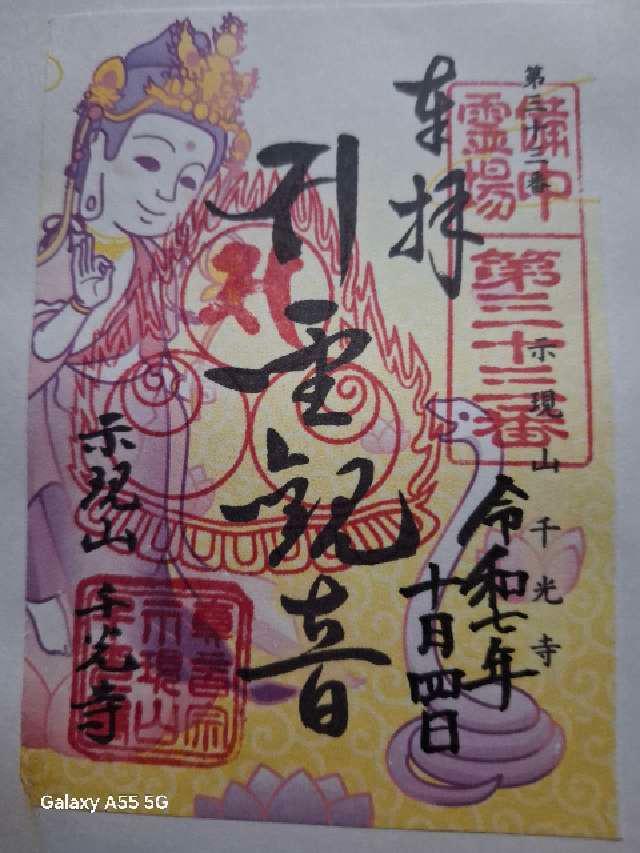 奉拝
備中
霊場
第三十三番
第三十三番 示現山 千光寺
令和七年
十月四日
聖観音
示現山 千光寺
真言宗
示現山
Galaxy A55 5G